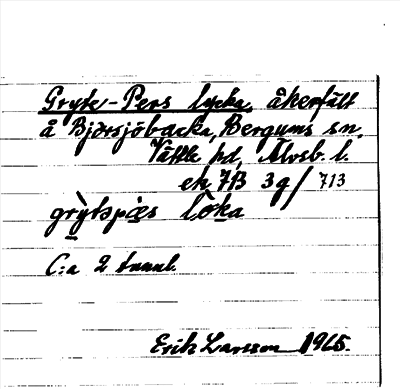 Gryte-Pers lycka, åkerfält
å Björsjöbacka, Bergums sn,
Vättle hd, Älvsb. l.
ek 7B 3g/713
grỳtəpæ̀s lò̱ka
C:a 2 tunnl.
Erik Larsson 1965.